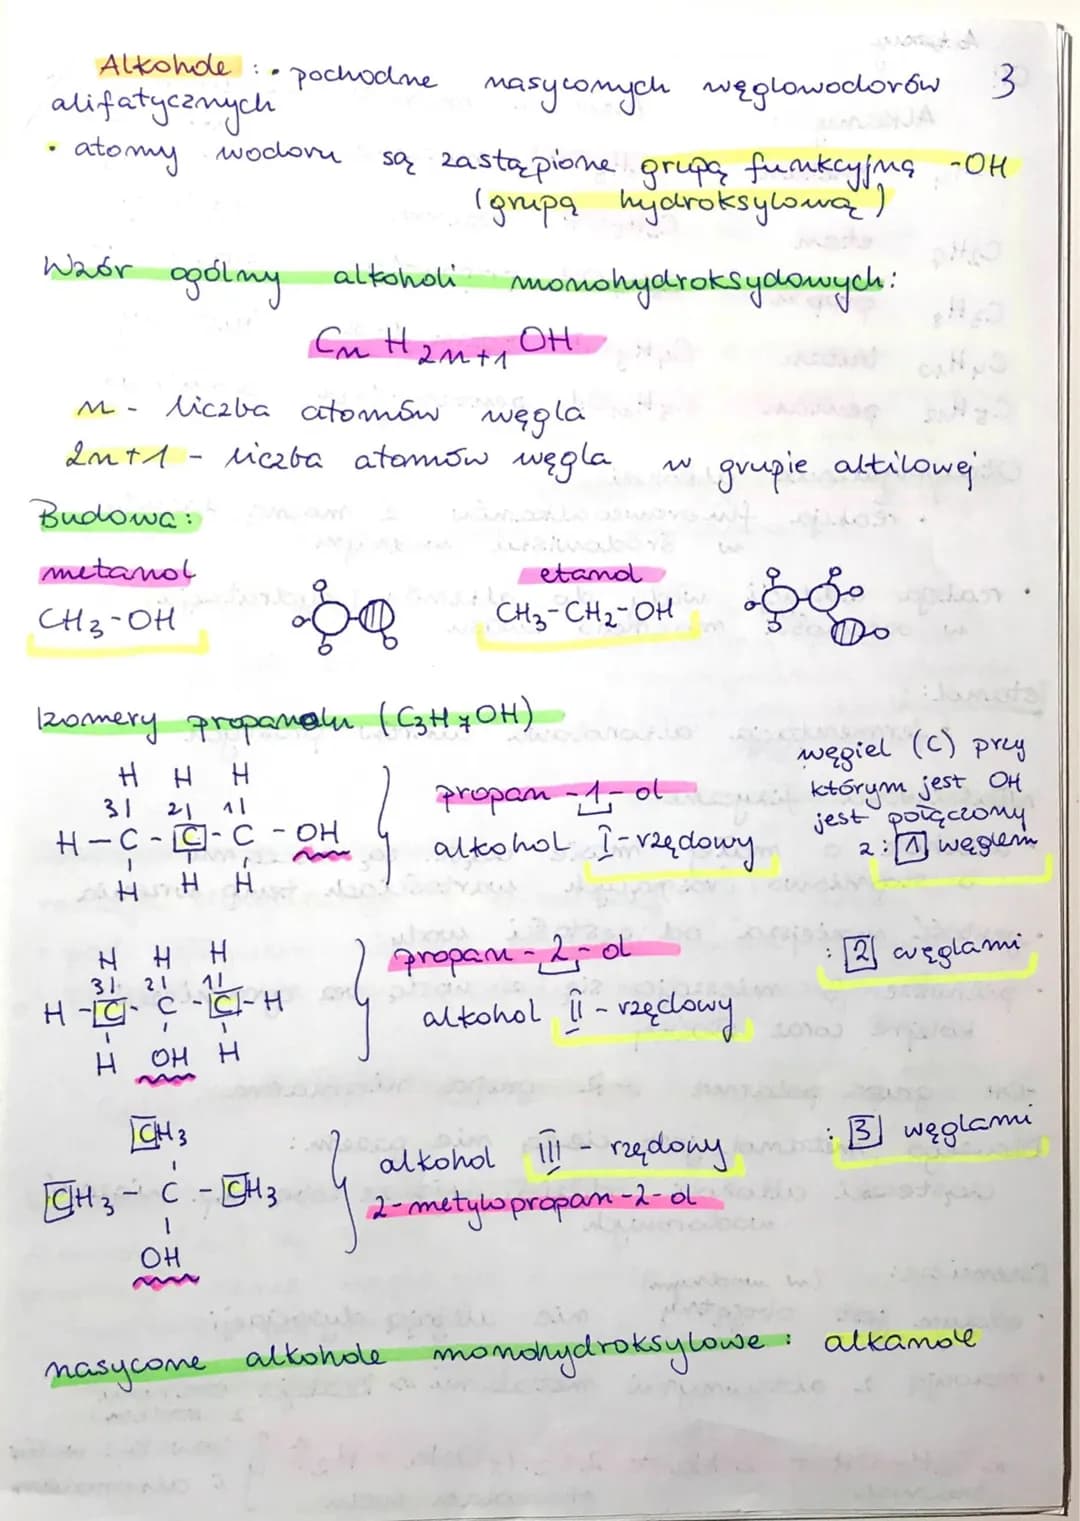 Alkohole : • pochodne nasyconych węglowodorów 3
alifatycznych
• atomy wodoru są zastąpione grupą funkcyjną -OH
(grupą hydroksylową)
Wzór ogólny alkoholi monohydroksydowych:
CnH2n+1OH
n - liczba atomów węgla
2n+1 - liczba atomów węgla w grupie alkilowej
Budowa:
metanol etanol
CH3-OH CH3-CH2-OH
Izomery propanolu (C3H7OH)
węgiel (C) przy
którym jest OH
jest połączony
z: 1 węglem
H H H
3| 2| 1|
H-C-C-C-OH
H H H
propan-1-ol
alkohol I-rzędowy
H H H
3| 2| 1|
H-C-C-C-H
H OH H
propan-2-ol
alkohol II-rzędowy
: 2 węglami
CH3
CH3-C-CH3
OH
alkohol III-rzędowy
2-metylopropan-2-ol
: 3 węglami
nasycone alkohole monohydroksylowe: alkanole